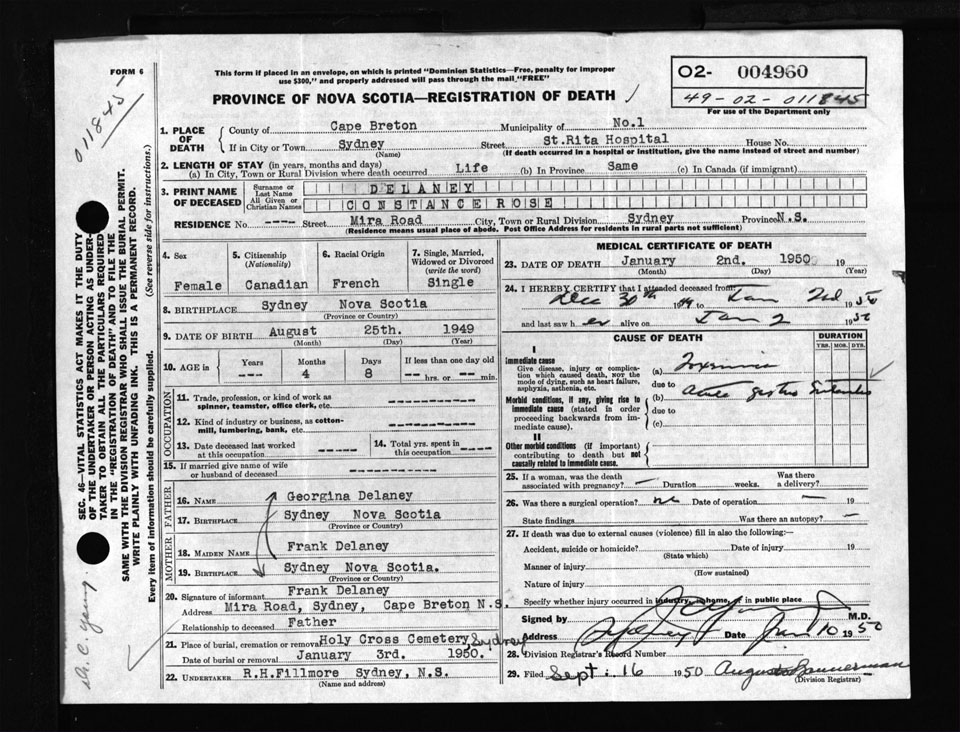 FORM 6
This form if placed in an envelope, on which is printed "Dominion Statistics—Free, penalty for improper
use $300," and properly addressed will pass through the mail "FREE"
PROVINCE OF NOVA SCOTIA—REGISTRATION OF DEATH
O2- 004960
49-02-011845
For use of the Department only
011845
1. PLACE OF DEATH
County of Cape Breton Municipality of No.1
If in City or Town Sydney Street St.Rita Hospital House No.
(Name) (If death occurred in a hospital or institution, give the name instead of street and number)
2. LENGTH OF STAY (in years, months and days)
(a) In City, Town or Rural Division where death occurred Life (b) In Province Same (c) In Canada (if immigrant)
3. PRINT NAME OF DECEASED
Surname or Last Name DELANEY
All Given or Christian Names CONSTANCE ROSE
RESIDENCE No. ---- Street Mira Road City, Town or Rural Division Sydney Province N.S.
(Residence means usual place of abode. Post Office Address for residents in rural parts not sufficient)
4. Sex 5. Citizenship (Nationality) 6. Racial Origin 7. Single, Married, Widowed or Divorced (write the word)
Female Canadian French Single
8. BIRTHPLACE Sydney Nova Scotia
(Province or Country)
9. DATE OF BIRTH August 25th. 1949
(Month) (Day) (Year)
10. AGE in Years Months Days If less than one day old
--- 4 8 -- hrs. or -- min.
OCCUPATION
11. Trade, profession or kind of work as
spinner, teamster, office clerk, etc.
12. Kind of industry or business, as cotton-
mill, lumbering, bank, etc.
13. Date deceased last worked at this occupation
14. Total yrs. spent in this occupation
15. If married give name of wife
or husband of deceased
FATHER
16. NAME Georgina Delaney
17. BIRTHPLACE Sydney Nova Scotia
(Province or Country)
MOTHER
18. MAIDEN NAME Frank Delaney
19. BIRTHPLACE Sydney Nova Scotia.
(Province or Country)
20. Signature of informant Frank Delaney
Address Mira Road, Sydney, Cape Breton N.S.
Relationship to deceased Father
21. Place of burial, cremation or removal Holy Cross Cemetery, Sydney
Date of burial or removal January 3rd. 1950.
22. UNDERTAKER R.H.Fillmore Sydney, N.S.
(Name and address)
MEDICAL CERTIFICATE OF DEATH
23. DATE OF DEATH January 2nd. 1950 19
(Month) (Day) (Year)
24. I HEREBY CERTIFY that I attended deceased from:
Dec 30th 1949 to Jan 2nd 1950
and last saw her alive on Jan 2 1950
CAUSE OF DEATH
DURATION
YRS. MOS. DYS.
I
Immediate cause
Give disease, injury or complica-
tion which caused death, NOT the
mode of dying, such as heart failure,
asphyxia, asthenia, etc.
(a) Toxemia
due to
Morbid conditions, if any, giving rise to
immediate cause (stated in order
proceeding backwards from im-
mediate cause).
(b) acute gastro Enteritis
due to
(c)
II
Other morbid conditions (if important)
contributing to death but not
causally related to immediate cause.
25. If a woman, was the death
associated with pregnancy? — Duration weeks. Was there a delivery?
26. Was there a surgical operation? no Date of operation — 19
State findings Was there an autopsy? —
27. If death was due to external causes (violence) fill in also the following:—
Accident, suicide or homicide? Date of injury 19
(State which)
Manner of injury
(How sustained)
Nature of injury
Specify whether injury occurred in industry, in home, or in public place
Signed by M.D.
Address Sydney Date Jan 10 1950
28. Division Registrar's Record Number
29. Filed Sept. 16 1950 August Bannerman
(Division Registrar)
SEC. 46—VITAL STATISTICS ACT MAKES IT THE DUTY
OF THE UNDERTAKER OR PERSON ACTING AS UNDER-
TAKER TO OBTAIN ALL THE PARTICULARS REQUIRED
IN THE "REGISTRATION OF DEATH" AND TO FILE THE
SAME WITH THE DIVISION REGISTRAR WHO SHALL ISSUE THE BURIAL PERMIT.
WRITE PLAINLY WITH UNFADING INK. THIS IS A PERMANENT RECORD.
Every item of information should be carefully supplied. (See reverse side for instructions.)